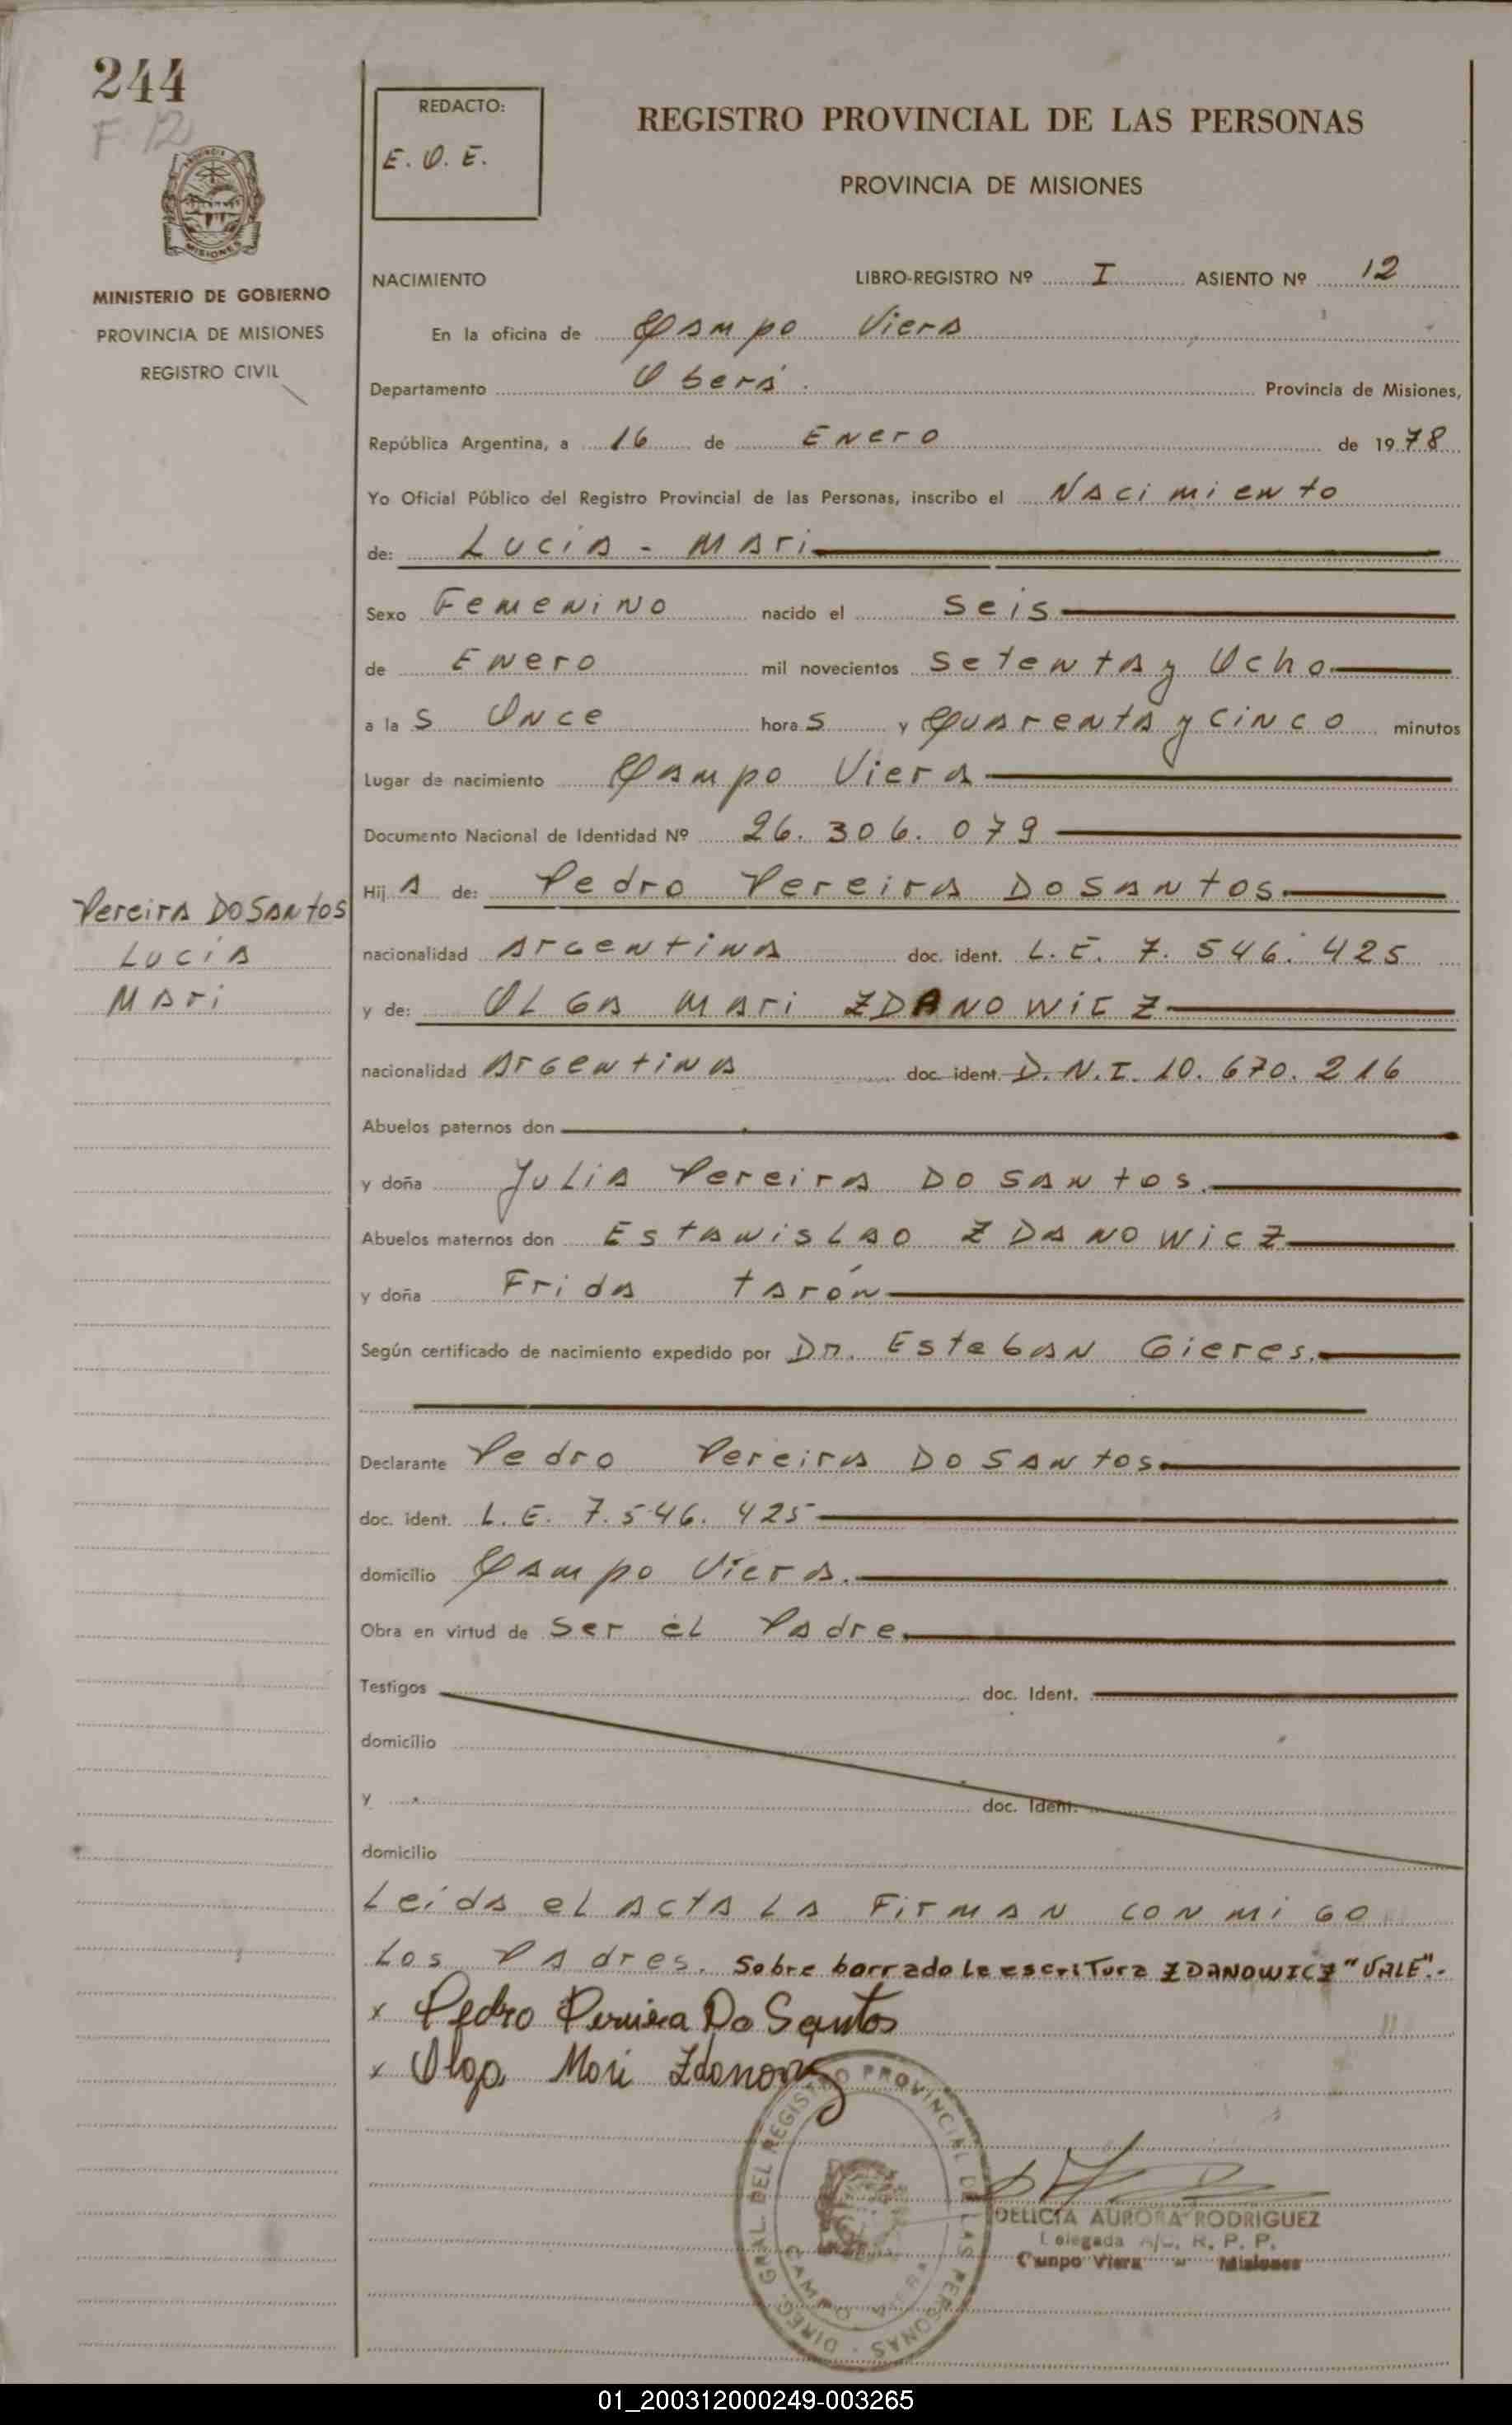 244
F. 12
REDACTO:
E. O. E.
REGISTRO PROVINCIAL DE LAS PERSONAS
PROVINCIA DE MISIONES
MISIONES
MINISTERIO DE GOBIERNO
PROVINCIA DE MISIONES
REGISTRO CIVIL
NACIMIENTO LIBRO-REGISTRO Nº I ASIENTO Nº 12
En la oficina de Campo Viera
Departamento Oberá. Provincia de Misiones,
República Argentina, a 16 de Enero de 1978
Yo Oficial Público del Registro Provincial de las Personas, inscribo el Nacimiento
de: Lucía - Mari
Sexo Femenino nacido el Seis
de Enero mil novecientos Setenta y Ocho
a la s Once hora s y Cuarenta y cinco minutos
Lugar de nacimiento Campo Viera
Documento Nacional de Identidad Nº 26.306.079
Hij a de: Pedro Pereira Do Santos
Pereira Do Santos
Lucía
Mari
nacionalidad Argentina doc. ident. L.E. 7.546.425
y de: Olga Mari ZDANOWICZ
nacionalidad Argentina doc. ident. D.N.I. 10.670.216
Abuelos paternos don
y doña Julia Pereira Do Santos.
Abuelos maternos don Estanislao ZDANOWICZ
y doña Frida Tarón
Según certificado de nacimiento expedido por Dn. Esteban Gieres.
Declarante Pedro Pereira Do Santos
doc. ident. L.E. 7.546.425
domicilio Campo Viera.
Obra en virtud de Ser el Padre.
Testigos doc. Ident.
domicilio
y doc. Ident.
domicilio
Leída el acta la Firman conmigo
los Padres. Sobre borrado le escritura ZDANOWICZ "VALE".-
x Pedro Pereira Do Santos
x Olga Mari
DIREC. GRAL. DEL REGISTRO PROVINCIAL DE LAS PERSONAS
CAMPO VIERA
DELICIA AURORA RODRIGUEZ
Delegada A/C. R. P. P.
Campo Viera - Misiones
01_200312000249-003265